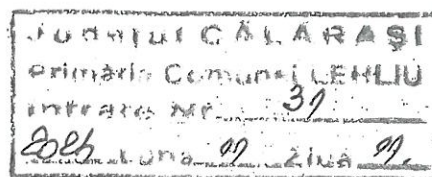 Județul CĂLĂRAȘI
primăria Comunei LEHLIU
intrare Nr. 31
Luna Ziua